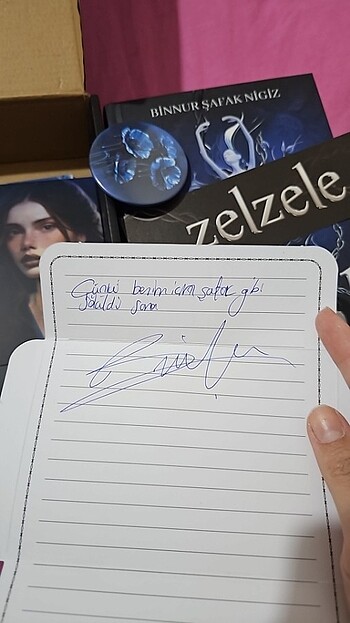 BİNNUR ŞAFAK NİGİZ
zelzele
Çünkü benim için şafak gibi
söküldü sana